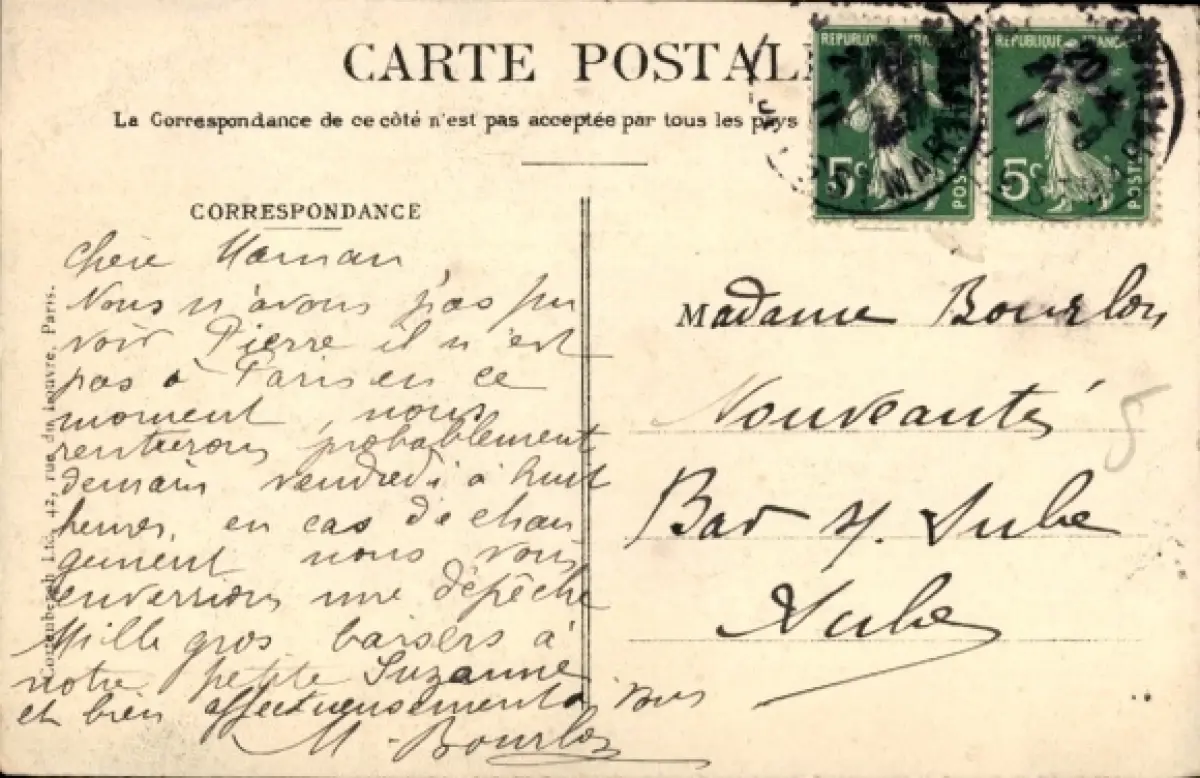 CARTE POSTALE
La Correspondance de ce côté n'est pas acceptée par tous les pays
REPUBLIQUE FRANÇAISE
5c
POSTES
REPUBLIQUE FRANÇAISE
5c
POSTES
CORRESPONDANCE
Chère Maman
Nous n'avons pas pu
voir Pierre il n'est
pas à Paris en ce
moment, nous
rentrerons probablement
demain vendredi à huit
heures, en cas de chan
gement nous vous
enverrions une dépêche
Mille gros baisers à
notre petite Suzanne
et bien affectueusement à vous
M. Bourlon
42, rue du Louvre, Paris.
Madame Bourlon
Nouveautés
Bar s/. Aube
Aube
5